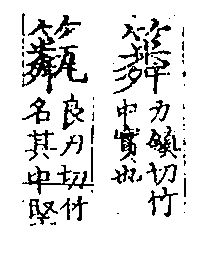 力鎮切竹
中實也
良刃切竹
名其中堅